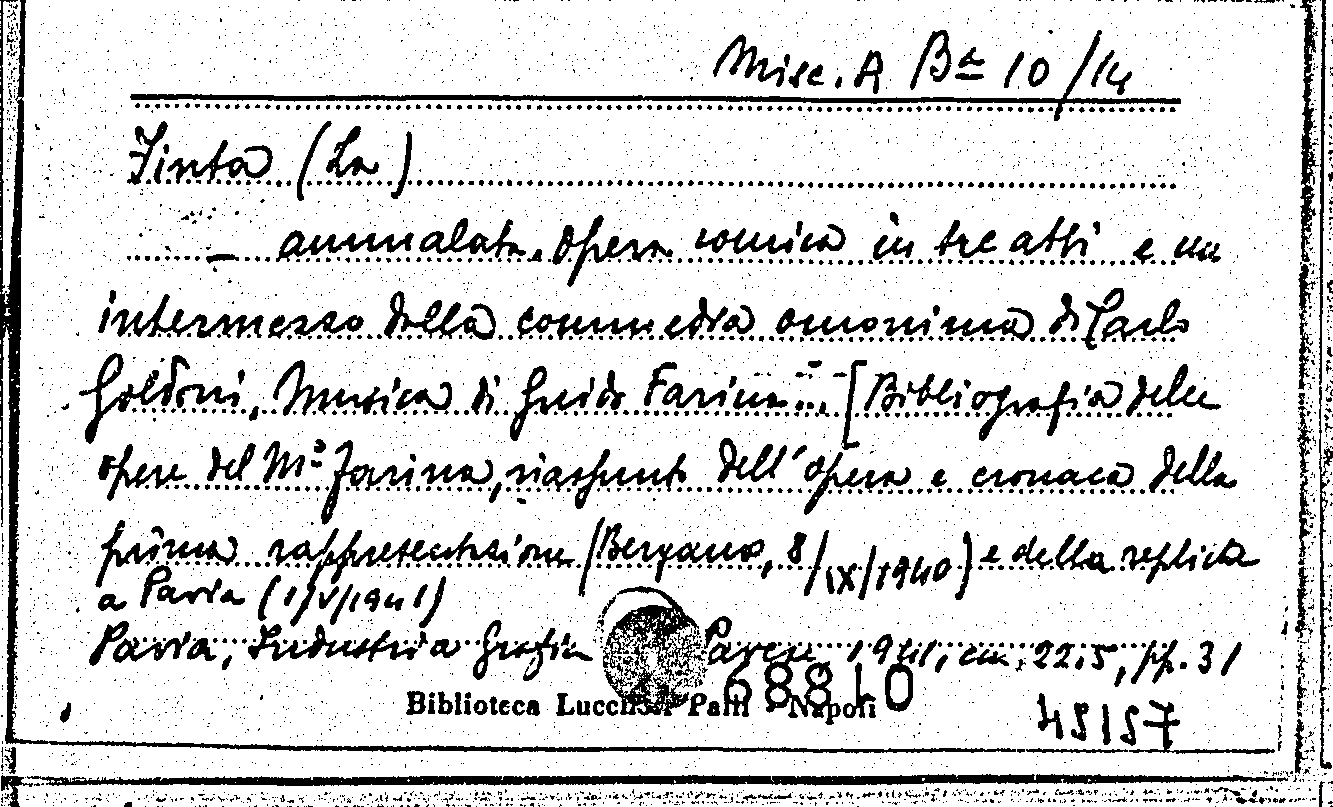 Misc. A Ba 10/14
Finta (La)
— ammalata. Opera comica in tre atti e un
intermezzo dalla commedia omonima di Carlo
Goldoni, Musica di Guido Farina... [Bibliografia delle
opere del Mº Farina, riassunto dell'opera e cronaca della
prima rappresentazione (Bergamo, 8/IX/1940) e della replica
a Pavia (1/V/1941)
Pavia, Industria Grafica Pavese, 1941, cm. 22.5, pp. 31
68810
Biblioteca Lucchesi Palli - Napoli
45157